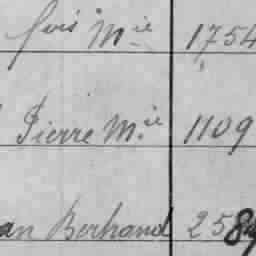 fois Mie 1754
Pierre Mie 1109
an Bertrand 258